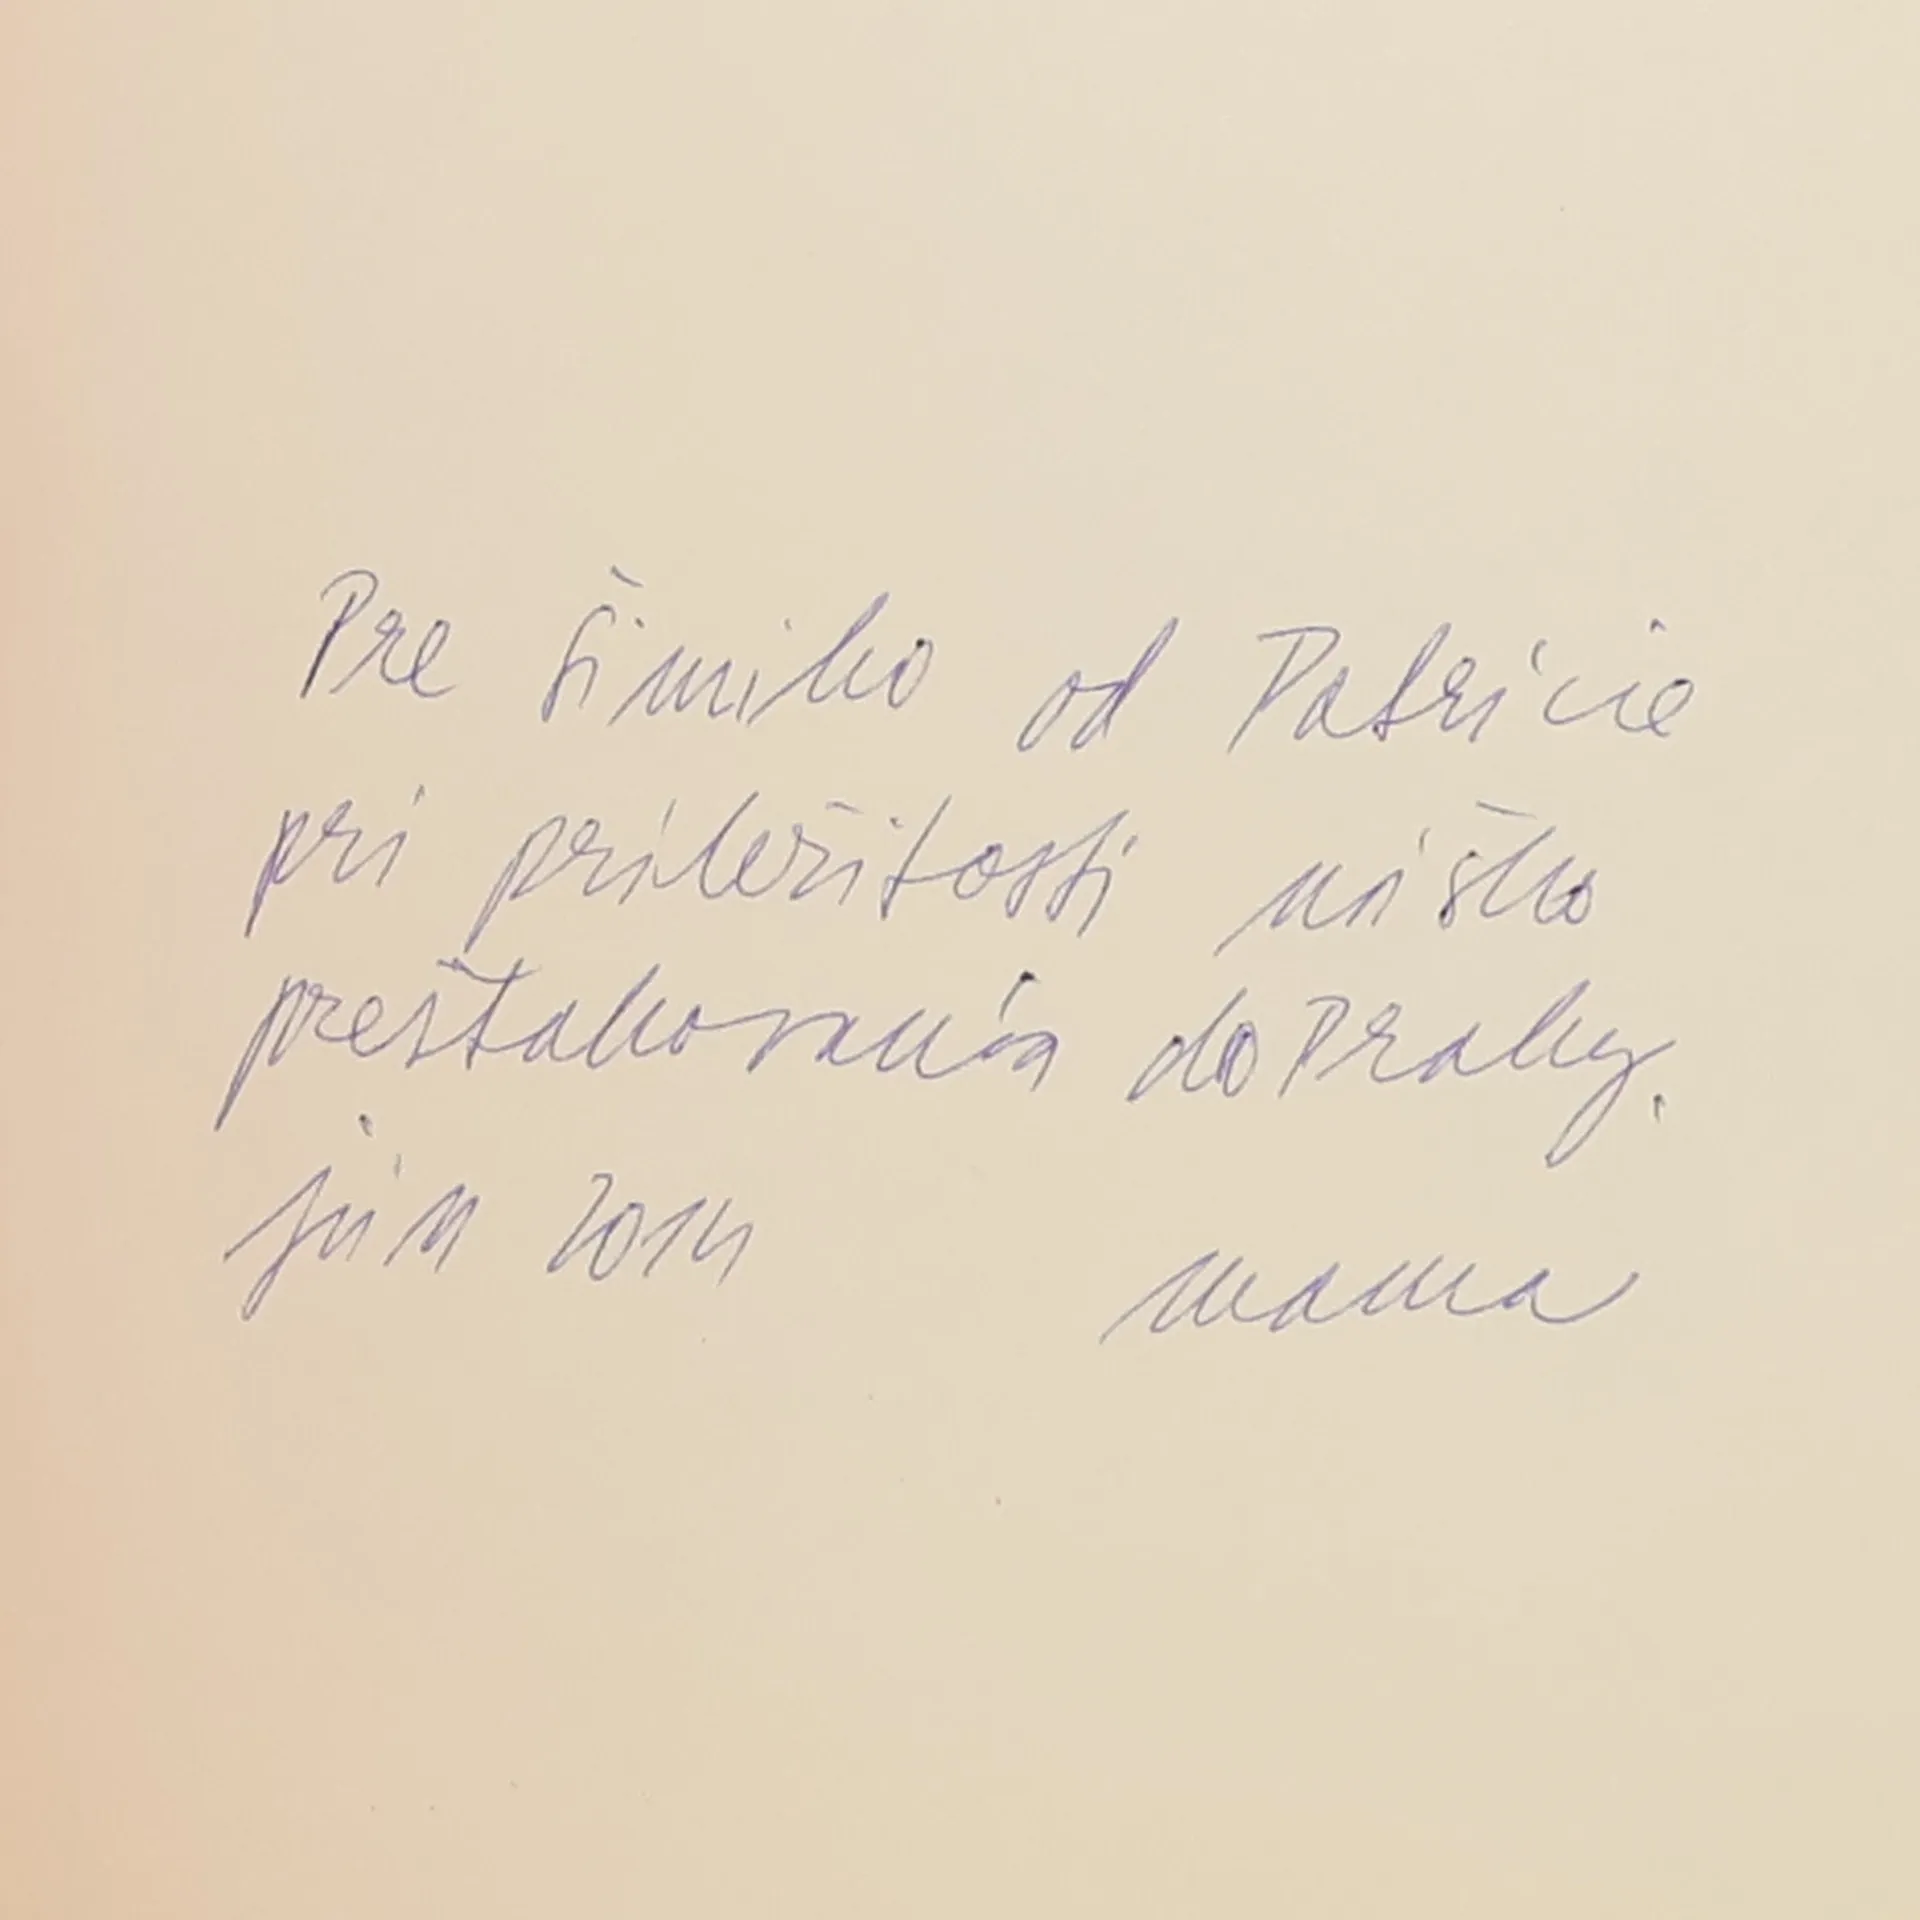 Pre Šimiho od Patricie
pri príležitosti
presťahovania do Prahy.
jún 2014
mama